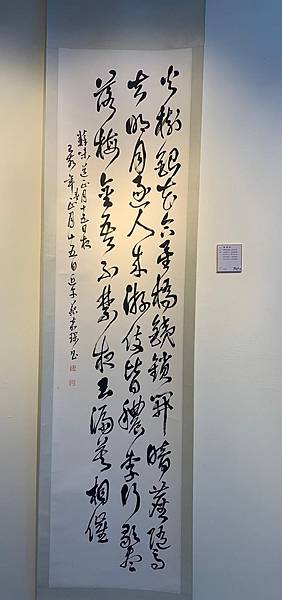 火樹銀花合星橋鐵鎖開暗塵隨馬
去明月逐人來游伎皆穠李行歌盡
落梅金吾不禁夜玉漏莫相催
蘇味道正月十五日夜
年正月十五日